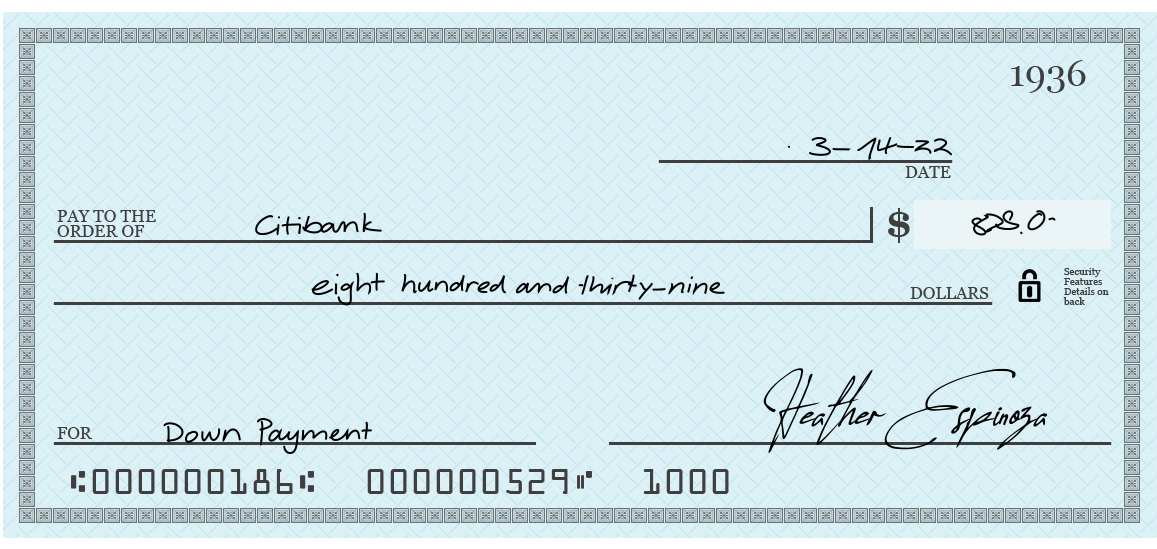 1936
3-14-22
DATE
PAY TO THE
ORDER OF
Citibank
$
eight hundred and thirty-nine
DOLLARS
Security
Features
Details on
back
FOR
Down Payment
Heather Espinoza
⑆000000186⑆ 000000529⑈ 1000